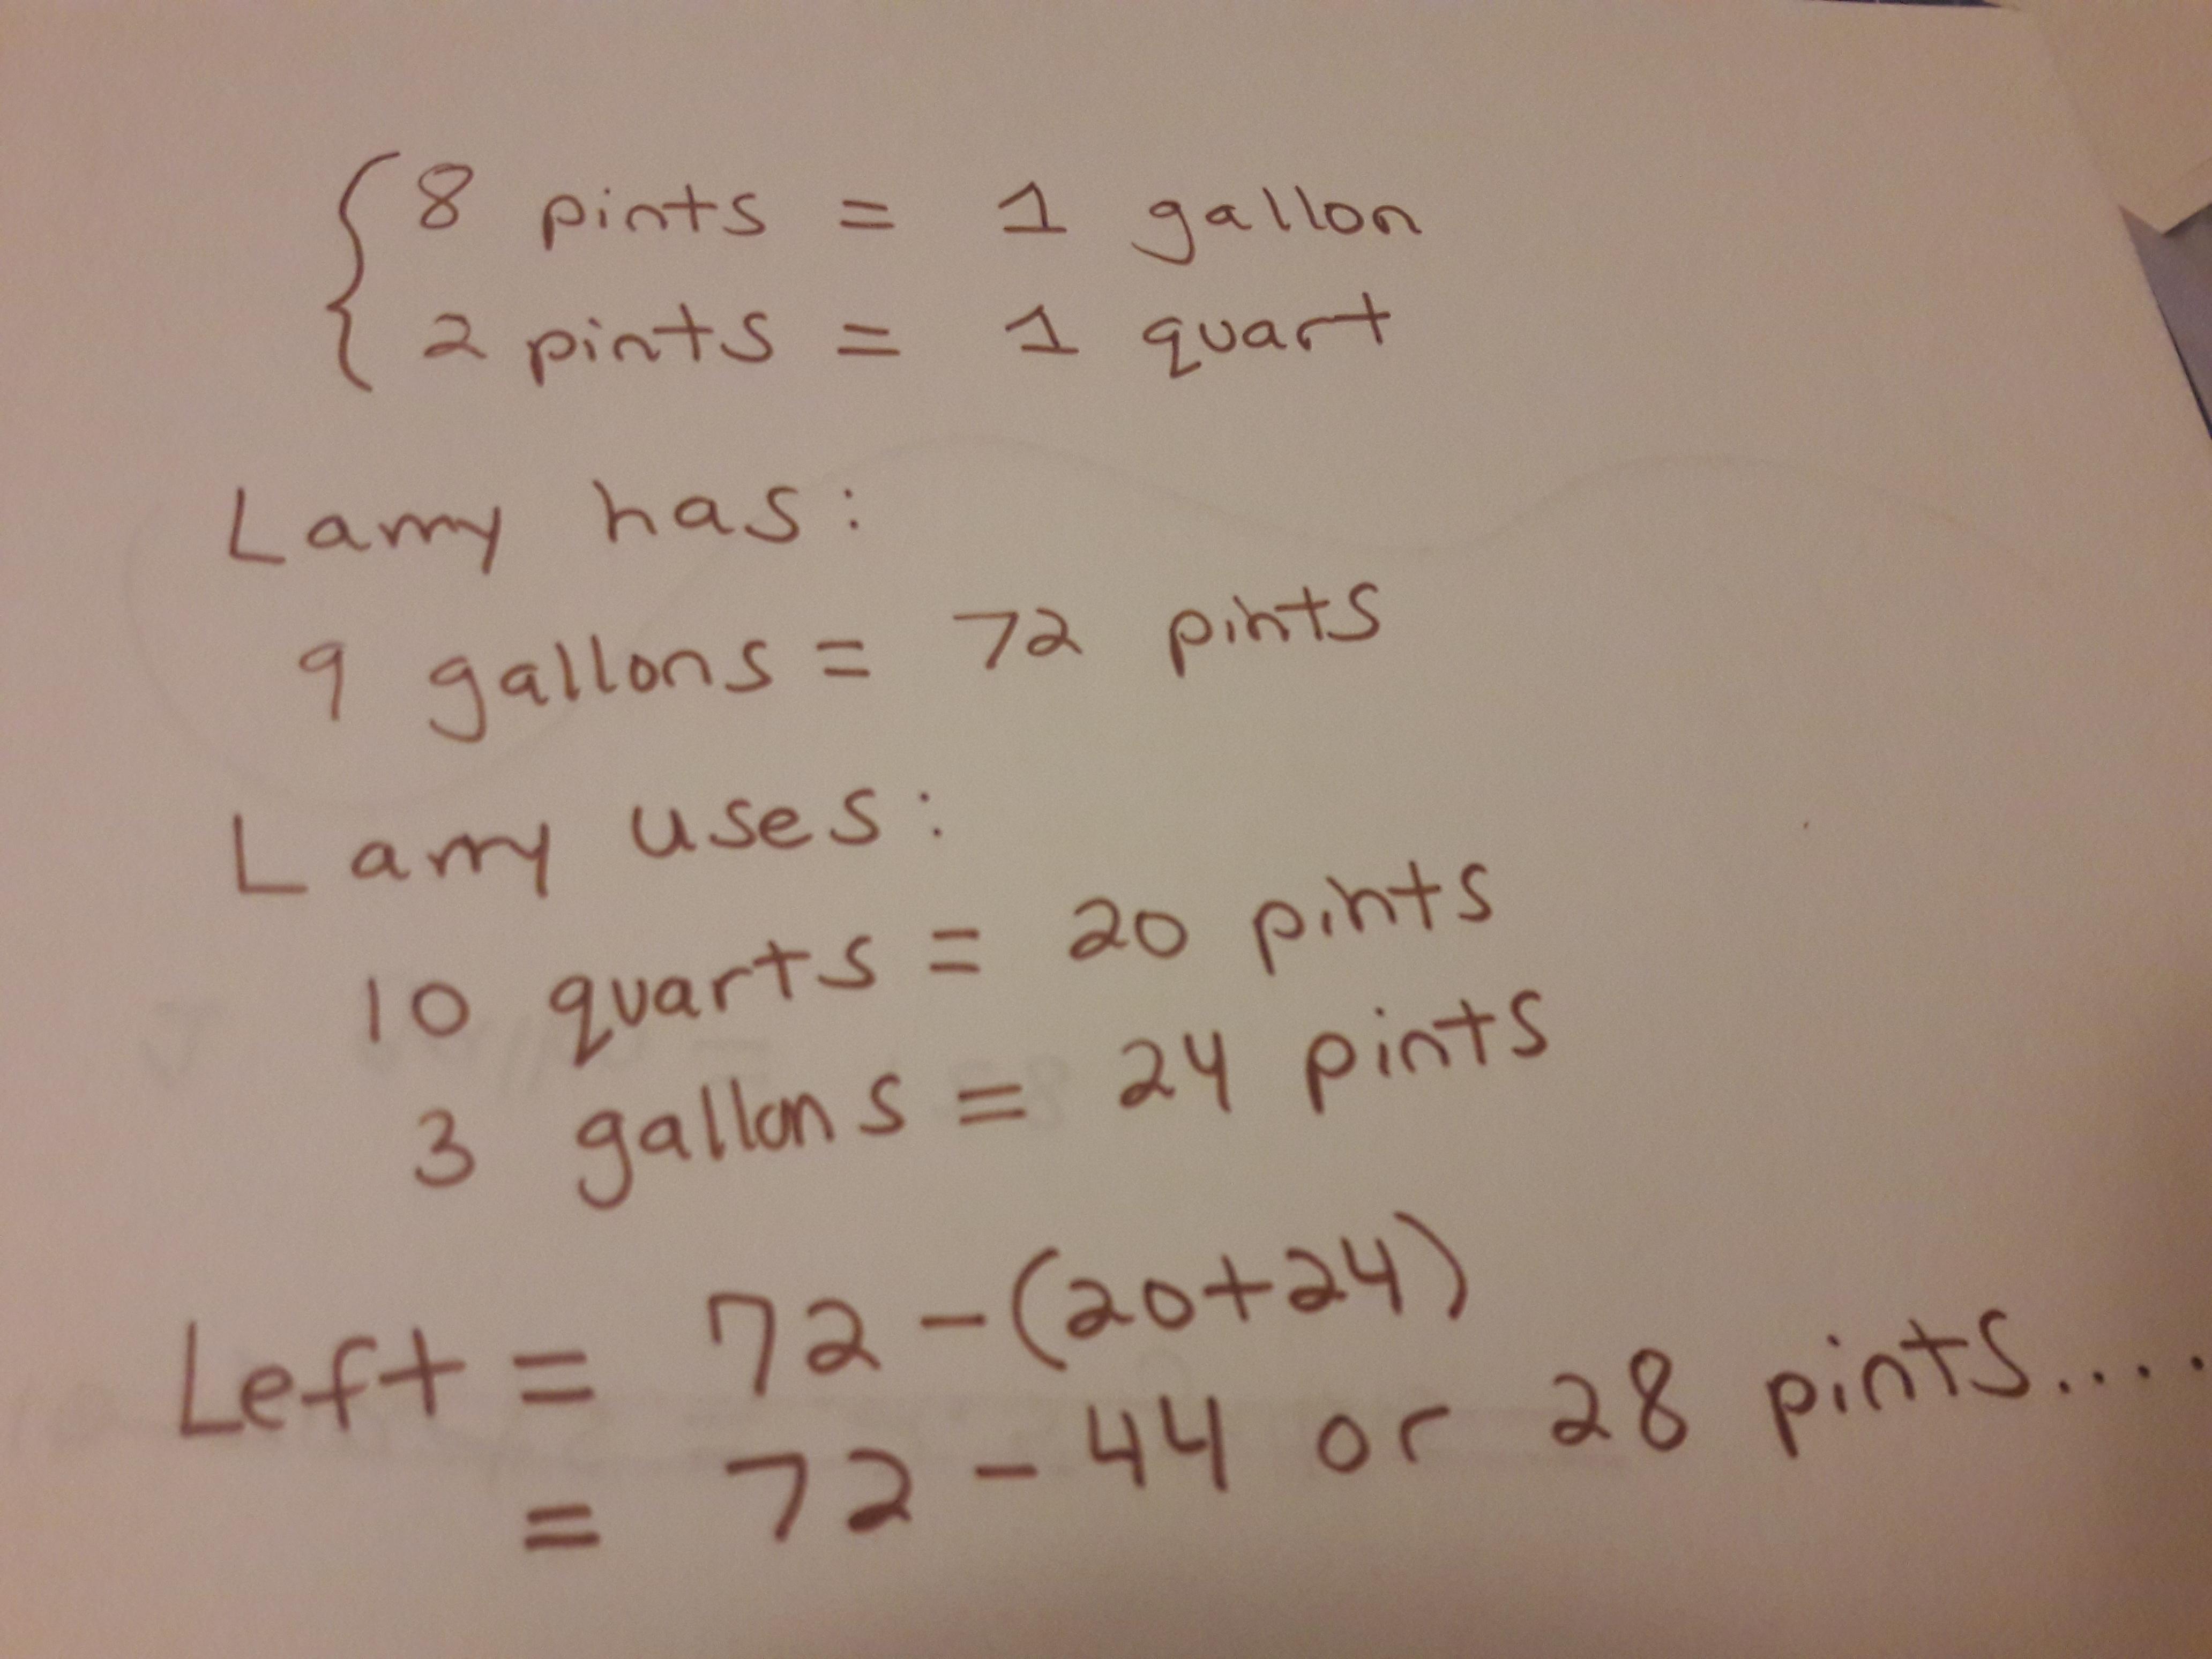 8 pints = 1 gallon
2 pints = 1 quart
Larry has:
9 gallons = 72 pints
Larry uses:
10 quarts = 20 pints
3 gallons = 24 pints
Left = 72 - (20+24)
= 72 - 44 or 28 pints....